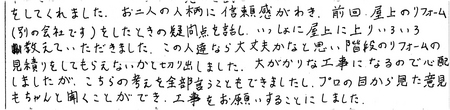 をしてくれました。お二人の人柄に信頼感がわき、前回、屋上のリフォーム
(別の会社です)をしたときの疑問点を話し、いっしょに屋上に上りいろいろ
教えていただきました。この人達なら大丈夫かなと思い階段のリフォームの
見積りをしてもらえないかと切り出しました。大がかりな工事になるので心配
しましたが、こちらの考えを全部言うこともできましたし、プロの目から見た意見
もちゃんと聞くことができ、工事をお願いすることにしました。